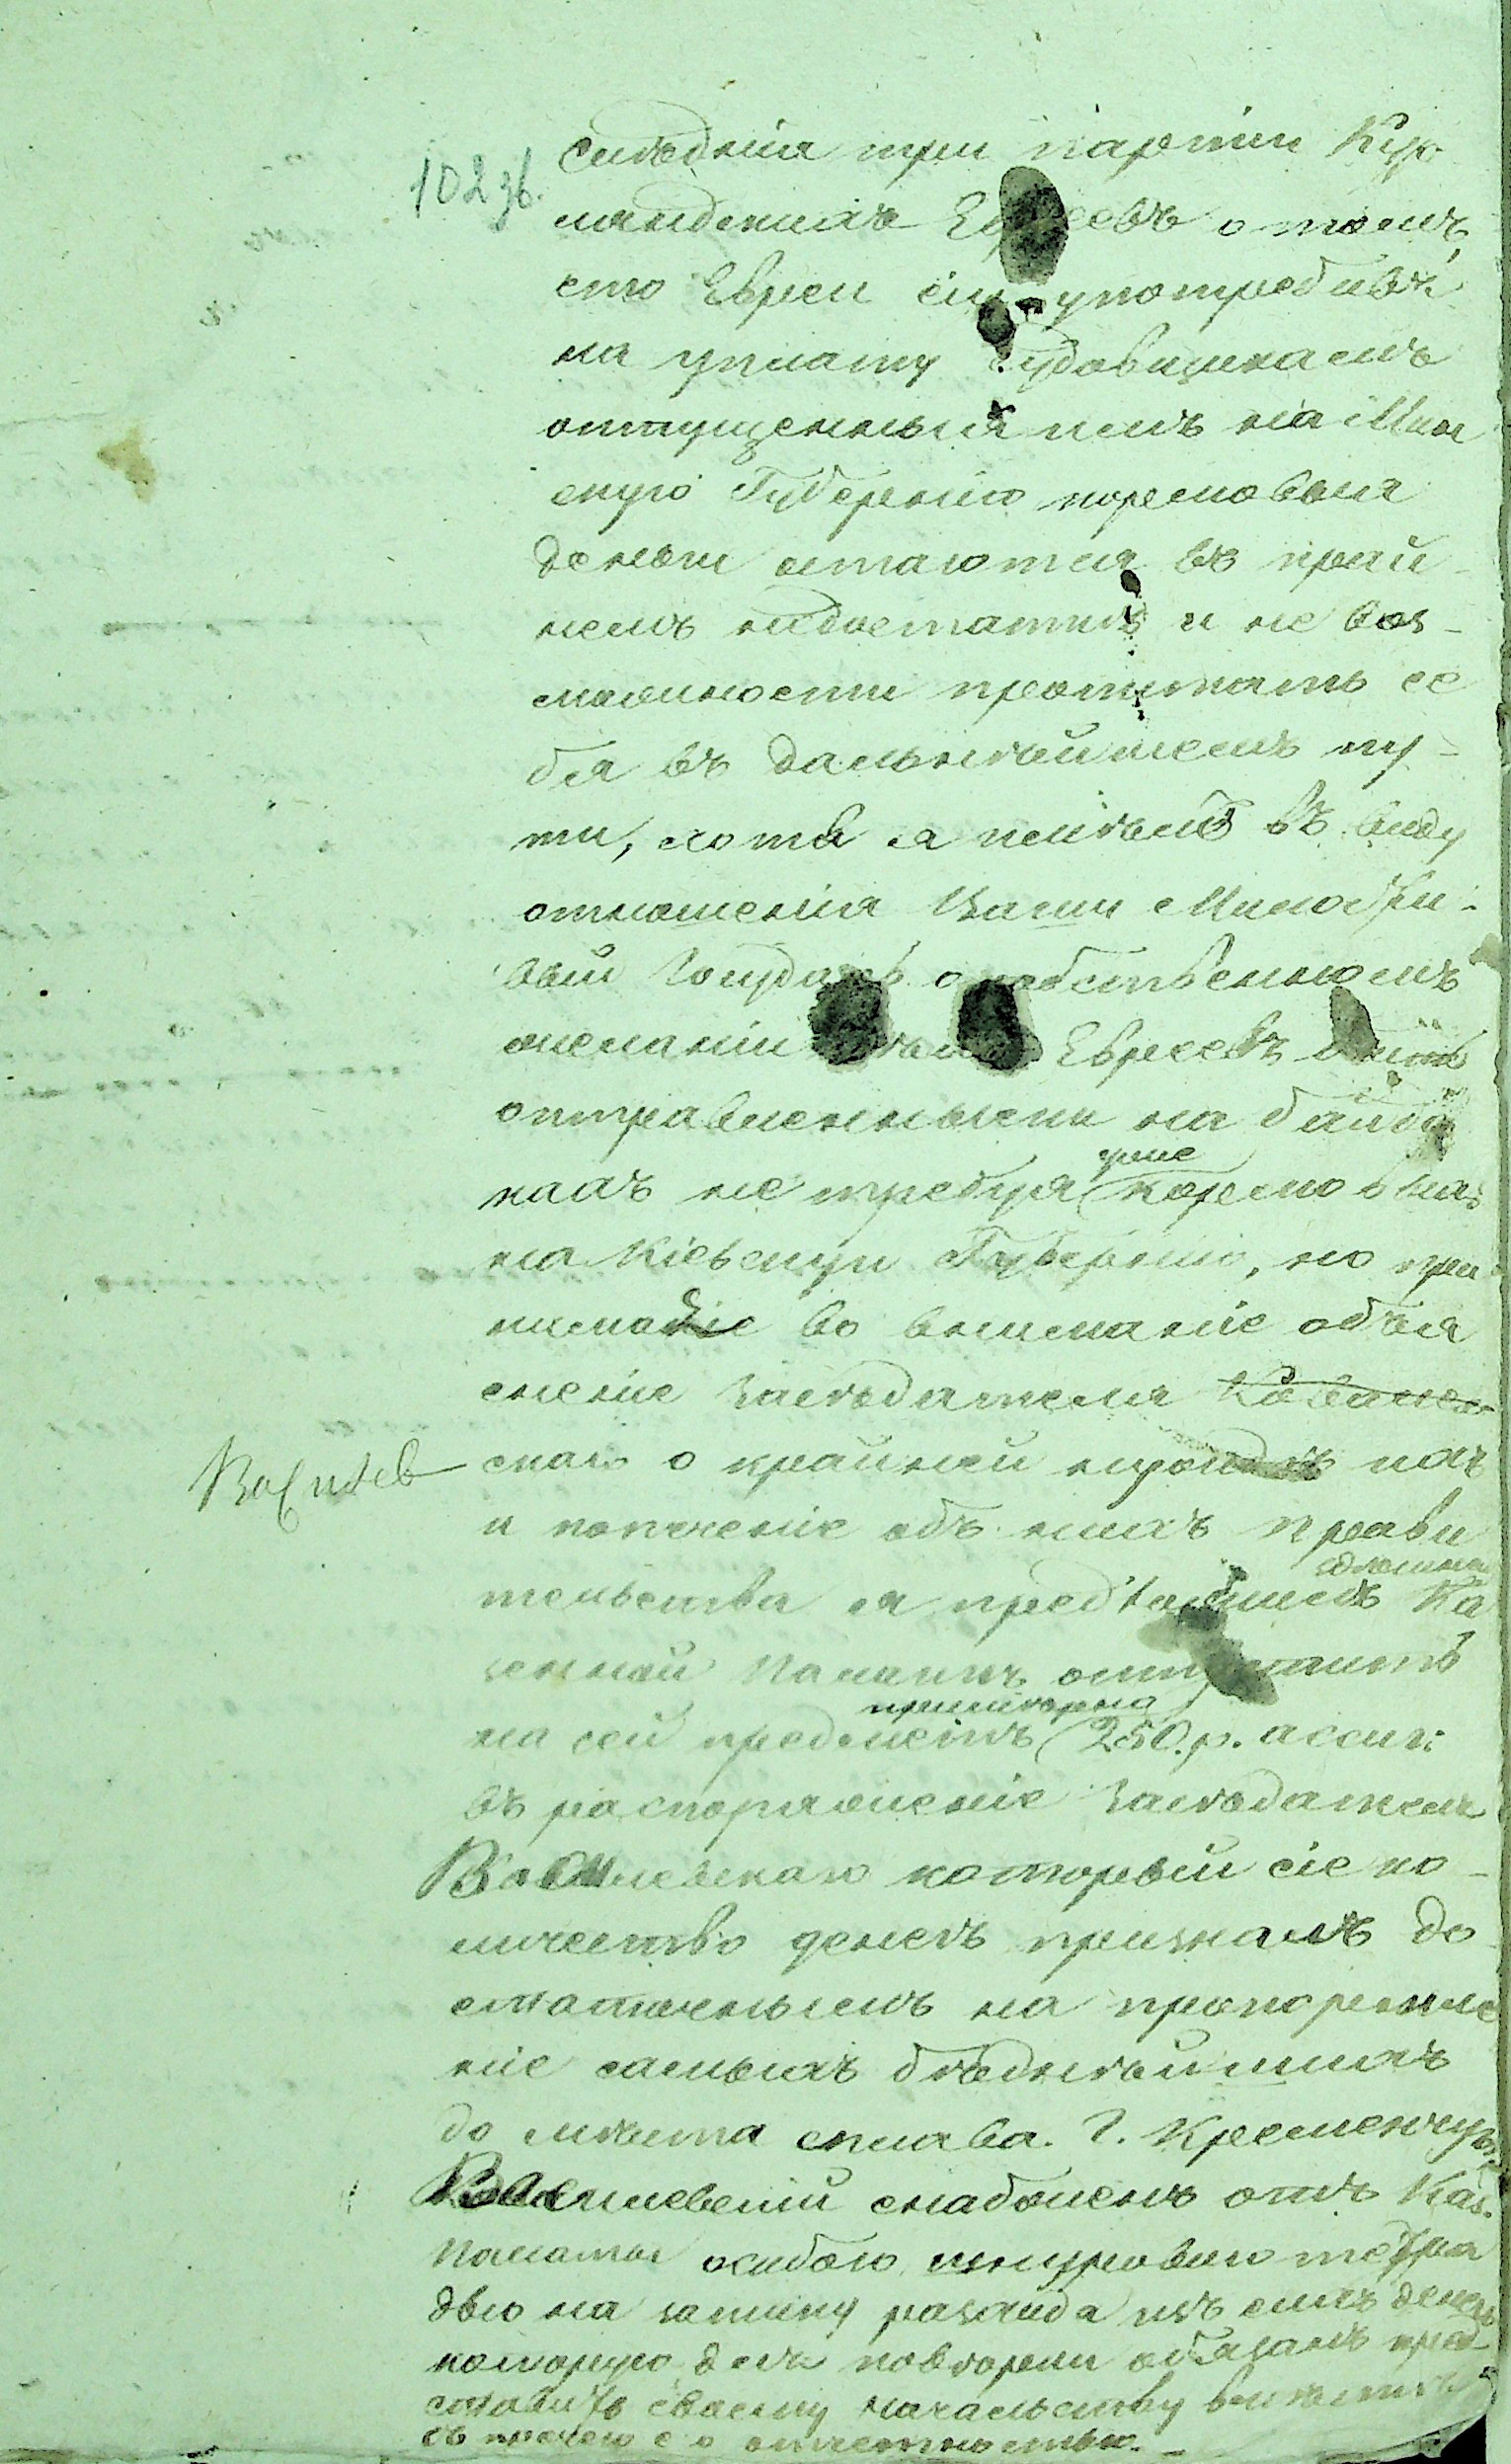 102 зв.
слѣдкія три партіи Кур
ляндскихъ Евреевъ о томъ,
что Евреи сіи употребивъ
на уплату судовщикамъ
отпущенныя имъ на Мин
скую Губернію кормовыя
деньги остаются въ край-
немъ недостаткѣ и не воз-
можности пропитать се
бя въ дальнѣйшемъ пу-
ти, хотя я имѣлъ въ виду
отношенія Ваши Милости-
вый Государь о собственномъ
желаніи Евреевъ быть
отправленными на байда
кахъ не требуя уже кормовыхъ
на Кіевскую Губернію, но при
нимая во вниманіе объя
сненіе Засѣдателя
Василев скаго о крайней нуждѣ ихъ
и попеченіе объ нихъ прави
тельства я предложилъ Ка
зенной Палатѣ отпустить
на сей предметъ примѣрно 250 р. ассиг:
въ распоряженіе Засѣдателя
Василевскаго который сіе ко-
личество денегъ призналъ до
статочнымъ на прокормле
ніе самыхъ бѣднѣйшихъ
до мѣста сплава. Г. Кременчуга
Василевскій снабженъ отъ Каз.
Палаты особою шнуровою тетра
дью на записку расхода изъ сихъ денегъ
которую для повѣрки обязанъ пред
ставить своему начальству вмѣстѣ
съ прочею его отчетностью.